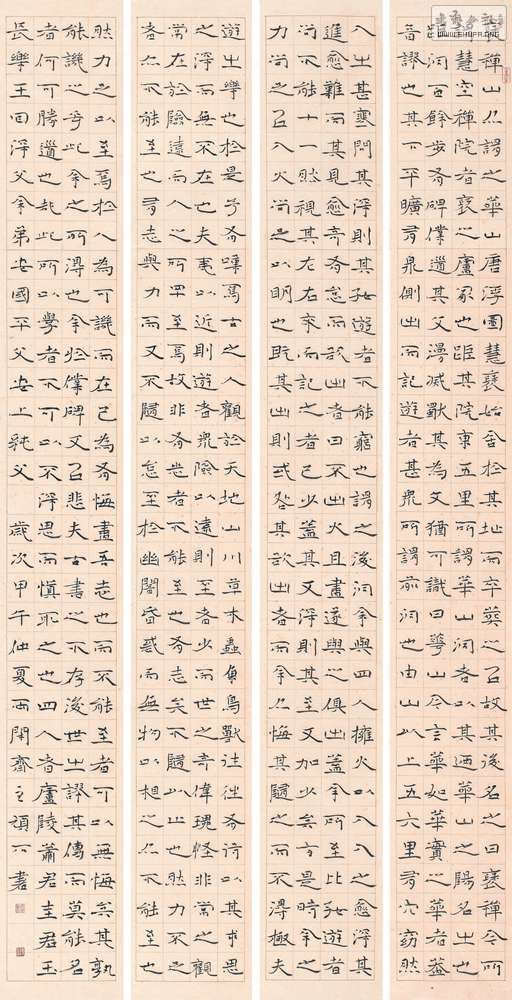 褒禪山亦謂之華山唐浮圖慧褒始舍於其址而卒葬之以故其後名之曰褒禪今所
謂慧空禪院者褒之廬冢也距其院東五里所謂華山洞者以其迺華山之陽名之也
距洞百餘步有碑仆道其文漫滅獨其為文猶可識曰花山今言華如華實之華者蓋
音謬也其下平曠有泉側出而記遊者甚眾所謂前洞也由山以上五六里有穴窈然
入之甚寒問其深則其好遊者不能窮也謂之後洞余與四人擁火以入入之愈深其
進愈難而其見愈奇有怠而欲出者曰不出火且盡遂與之俱出蓋余所至比好遊者
尚不能十一然視其左右來而記之者已少蓋其又深則其至又加少矣方是時余之
力尚足以入火尚足以明也既其出則或咎其欲出者而余亦悔其隨之而不得極夫
遊之樂也於是予有嘆焉古之人觀於天地山川草木蟲魚鳥獸往往有得以其求思
之深而無不在也夫夷以近則遊者眾險以遠則至者少而世之奇偉瑰怪非常之觀
常在於險遠而人之所罕至焉故非有志者不能至也有志矣不隨以止也然力不足
者亦不能至也有志與力而又不隨以怠至於幽闇昏惑而無物以相之亦不能至也
然力足以至焉於人為可譏而在己為有悔盡吾志也而不能至者可以無悔矣其孰
能譏之乎此余之所得也余於仆碑又以悲夫古書之不存後世之謬其傳而莫能名
者何可勝道也哉此所以學者不可以不深思而慎取之也四人者廬陵蕭君圭君玉
長樂王回深父余弟安國平父安上純父 歲次甲午仲夏雨閑齋主